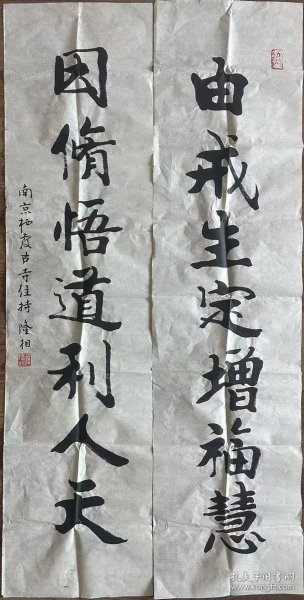 由戒生定增福慧
因脩悟道利人天
南京栖霞古寺住持 隆相
孔夫子旧书网